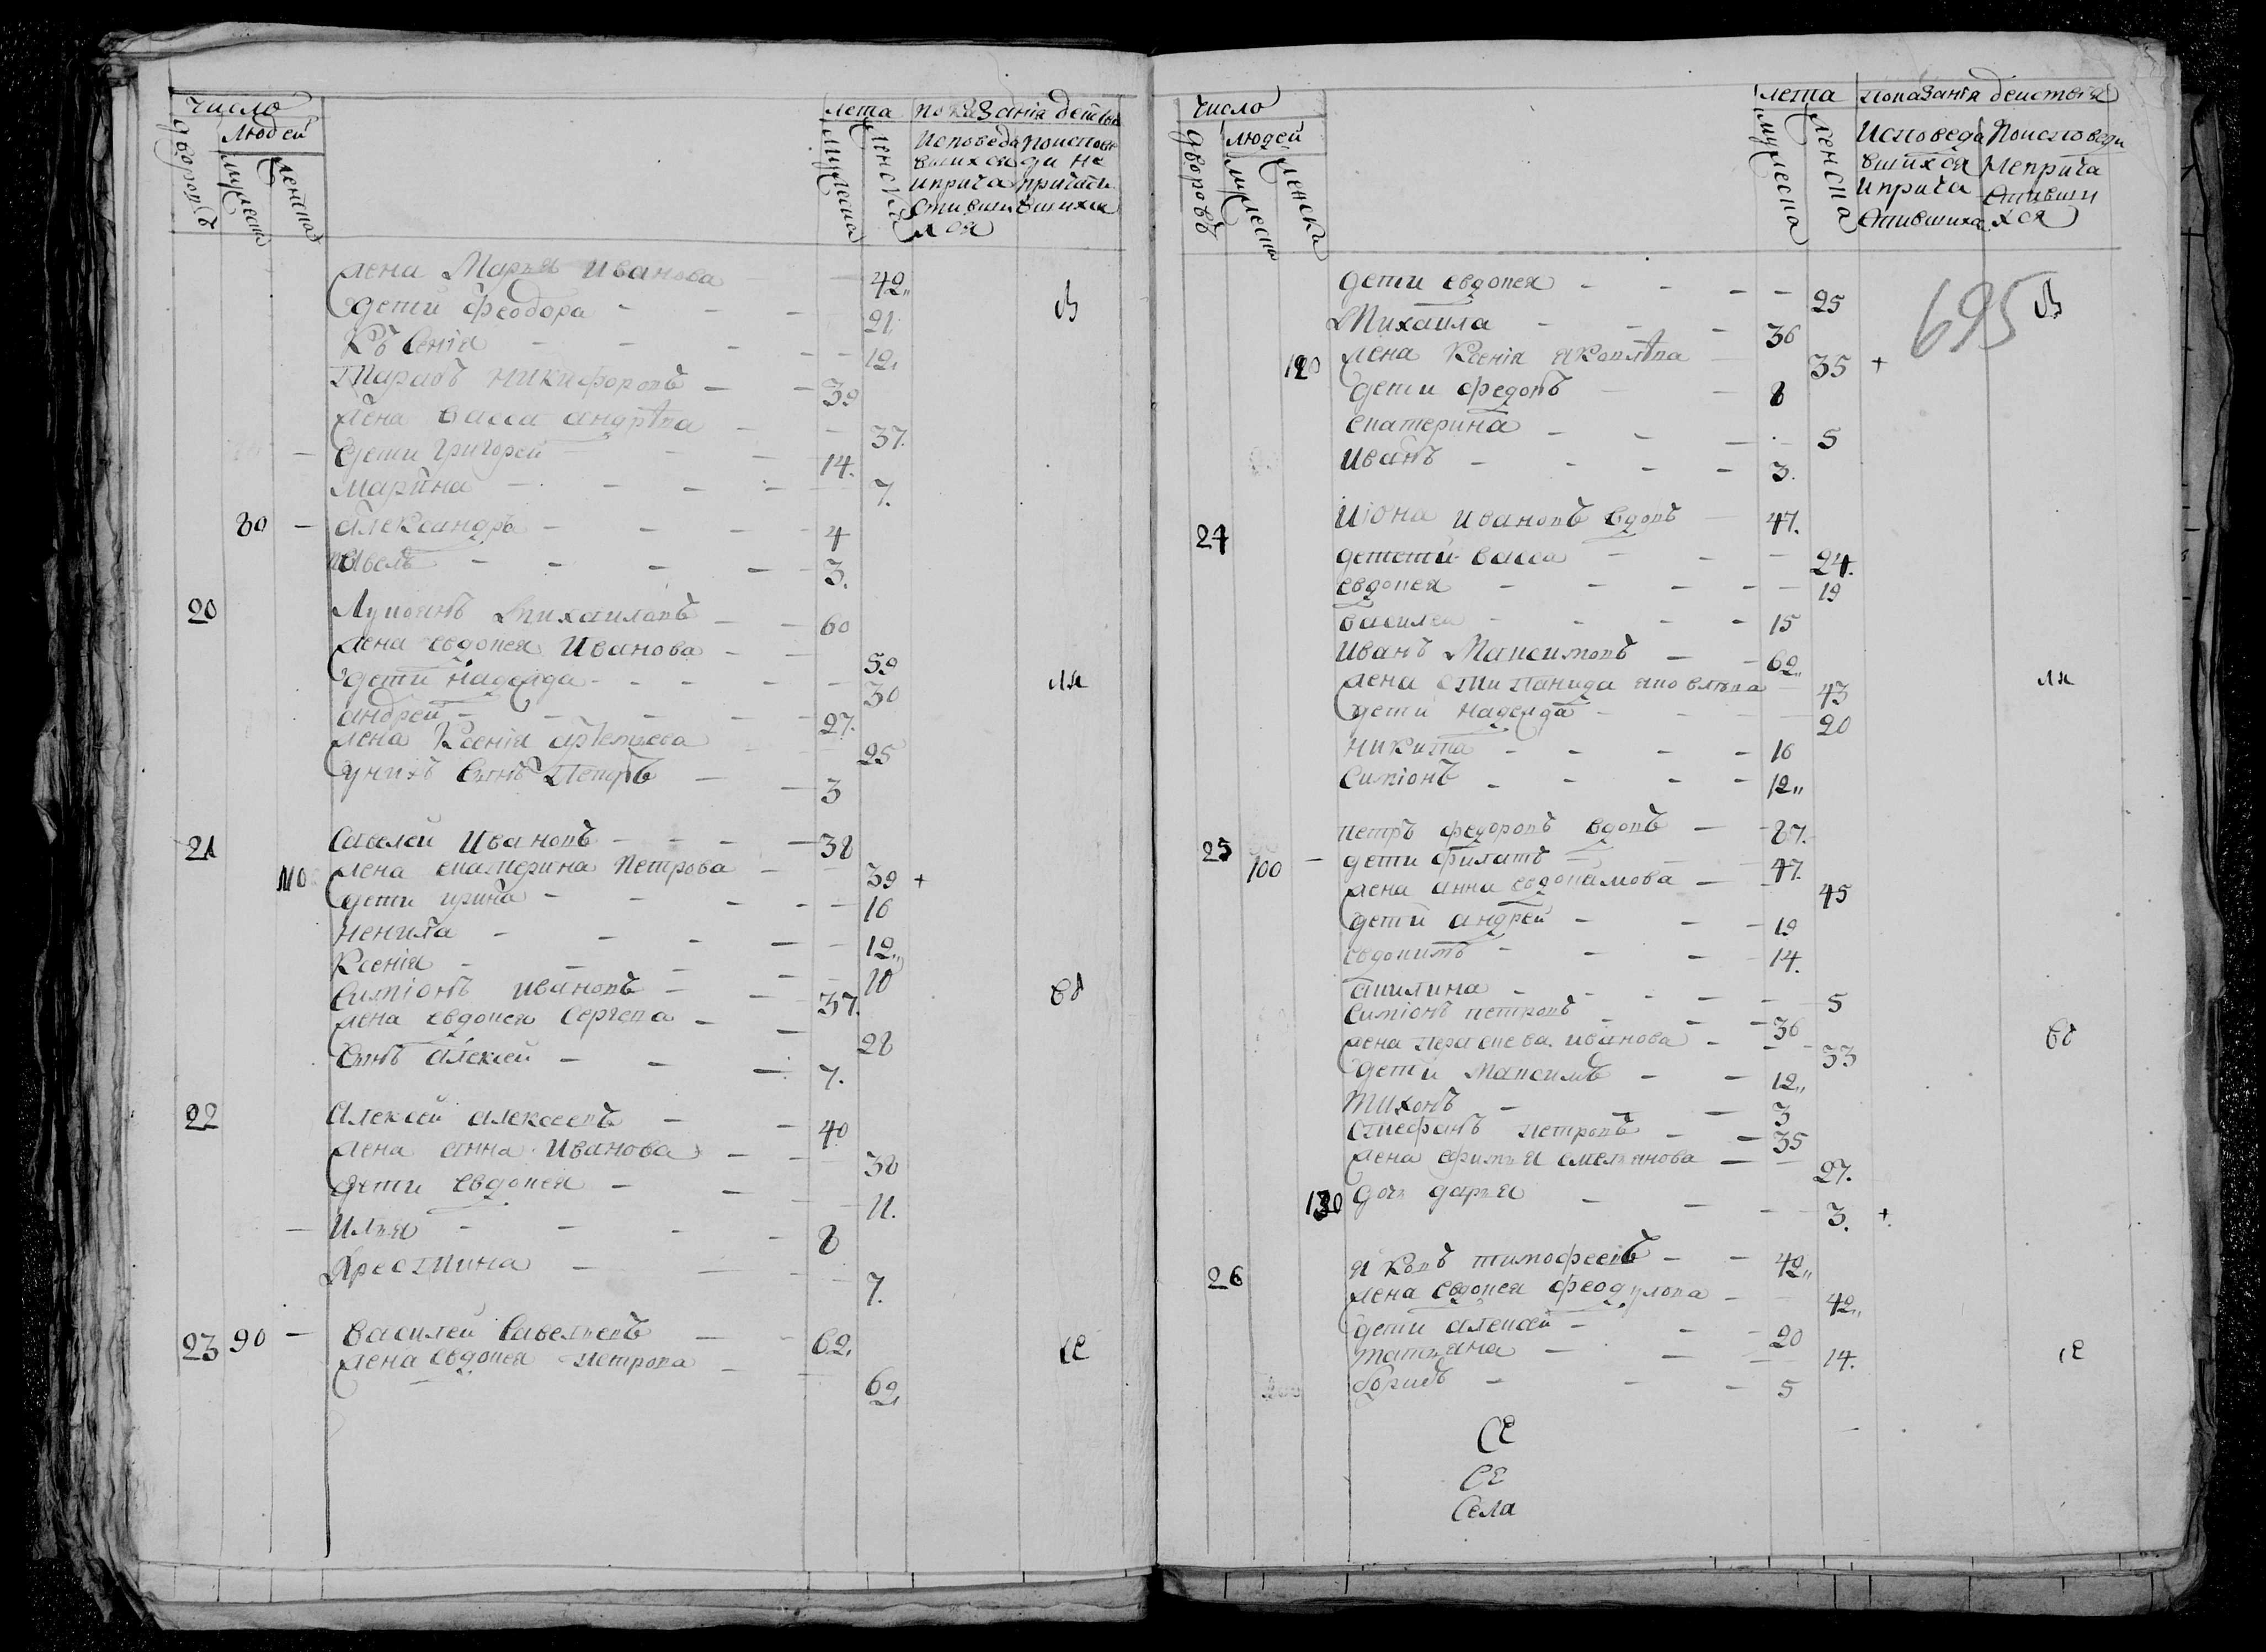 число
дворовъ
людей
мужеска
женска
лета
мужеска
женска
показания действа
Исповеда
вшихся
и прича
стивши
хся
поиспове
ди не
причасти
вшихся
жена Марья Иванова — 42
дети Феодора — 21
Къ сенія — 12
Тарасъ Никифоровъ — 39
жена Васса Андрѣва — 37.
дети Григорей — 14.
Марина — 7.
80 — Александръ — 4
Павелъ — 3.
20 Лукиянъ Михаиловъ — 60
жена Евдокея Иванова — 59
дети Надежда — 30
Андрей — 27.
жена Ксенія — 25
у нихъ сынъ Петръ — 3
21 Савелей Ивановъ — 38
110 жена Екатерина Петрова — 39 +
дети Ирина — 16
Ненила — 12
Ксенія — 10
Симіонъ Ивановъ — 37.
жена Евдокея Сергева — 28
сынъ Алексей — 7.
22 Алексей Алексеевъ — 40
жена Анна Иванова — 38
дети Евдокея — 11.
Илья — 8
Крестина — 7.
23 90 — Василей Савельевъ — 62
жена Евдокея Петрова — 62
число
дворовъ
людей
мужеска
женска
лета
мужеска
женска
показанія действія
Исповеда
вшихся
и прича
стившихся
Поисповеди
не прича
стивши
хся
695
дети Евдокея — 25
Михаила — 36
120 жена Ксенія Яковлѣва — 35 +
дети Федотъ — 8
Екатерина — 5
Иванъ — 3.
24 Иіона Ивановъ вдовъ — 47.
детети Васса — 24.
Евдокея — 19
Василей — 15
Иванъ Максимовъ — 62
жена Степанида Яковлѣва — 43
дети Надежда — 20
Никита — 16
Симіонъ — 12
25 Петръ Федоровъ вдовъ — 87.
100 — дети Филатъ — 47.
жена Анна Евдокимова — 45
дети Андрей — 19
Евдокимъ — 14.
Акилина — 5
Симіонъ Петровъ — 36
жена Парасцева Иванова — 33
дети Максимъ — 12
Тихонъ — 3
Стефанъ Петровъ — 35
жена Ефимья Емельянова — 27.
130 дочь Дарья — 3. +
26 Яковъ Тимофеевъ — 42
жена Евдокея Феодулова — 42
дети Алексей — 20
Татьяна — 14.
Борисъ — 5
СЕ
СЕ
Села